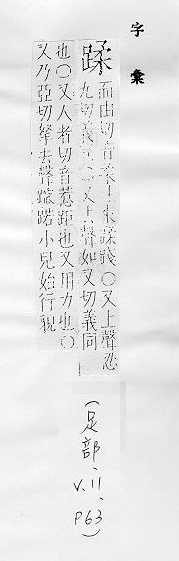 字彙
蹂
由切音柔蹂踐○又上聲忍
九切義○又聲如又切義同
也○又人者切音惹距也又用力也○
又乃亞切拏去聲小兒始行貌
(足部、V.11、P63)